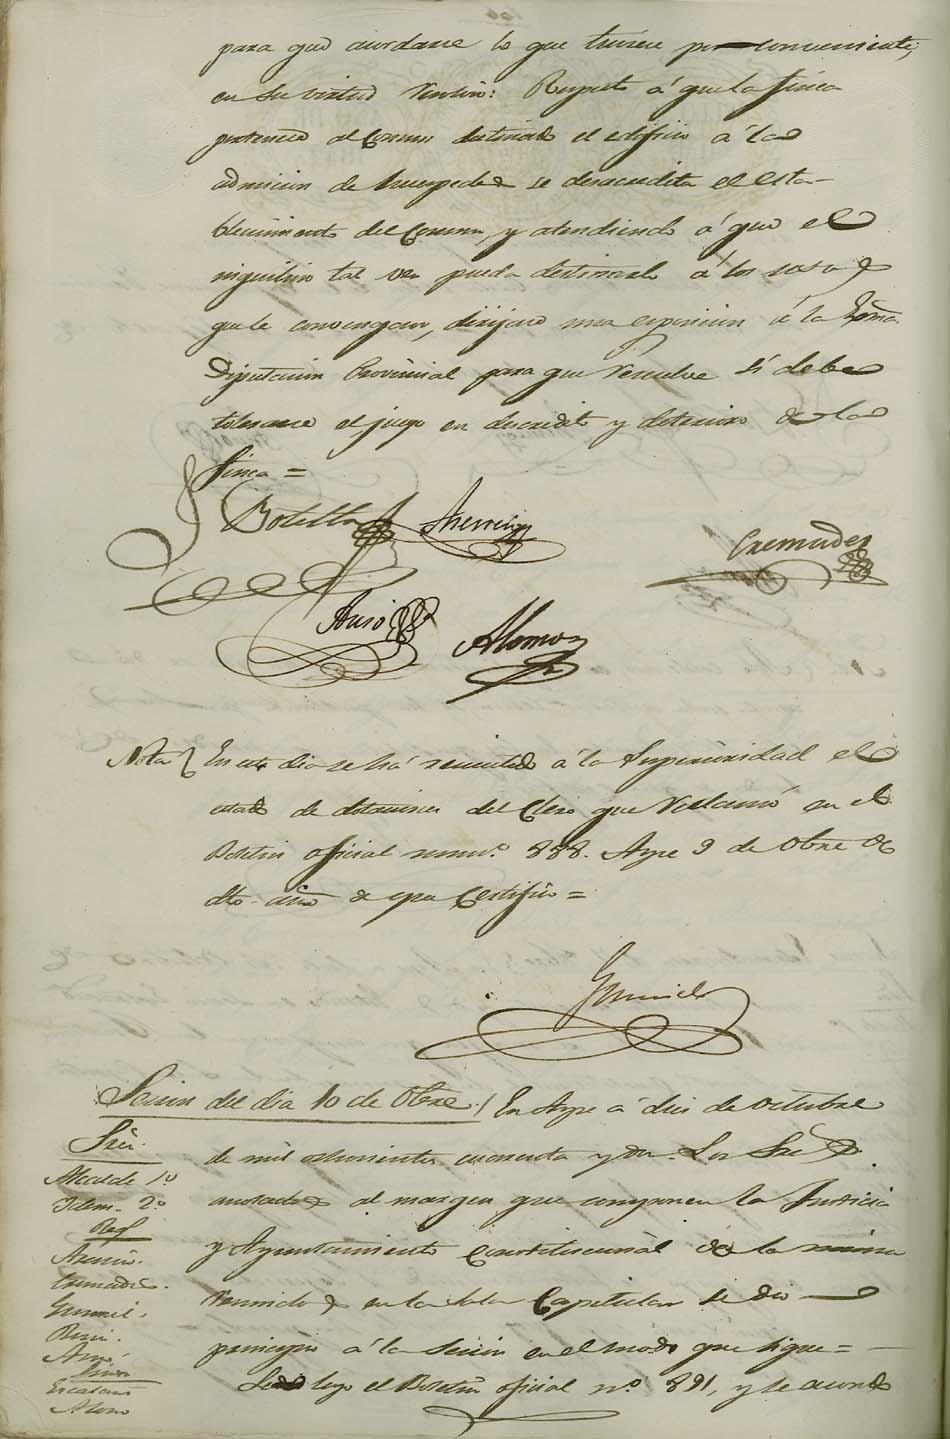 para que acordase lo que tuviere por conveniente,
en su virtud resolvió: Respecto á que la finca
pertenece al Comun destinado el edificio á la
admision de huespedes se desacredita el esta-
blecimiento del Comun, y atendiendo á que el
inquilino tal vez pueda destinarlo á los usos
que le convengan, dirijase una esposicion á la Exma.
Diputacion Provincial para que resuelve si debe
tolerarse el juego en descredito y deterioro de la
finca =
Botella Asensi
Cremades
Aviño
Alonso
Nota En este dia se há remitido á la Superioridad el
estado de dotaciones del Clero que reclamó en el
Boletin oficial num.º 888. Aspe 9 de Obre de
dho. año de que Certifico =
Sesion del dia 10 de Obre. / En Aspe á diez de octubre
Sres.
de mil ochocientos cuarenta y dos. Los Sres
Alcalde 1.º
Idem. 2.º
anotados al margen que componen la Justicia
Reg.
y Ayuntamiento Constitucional de la misma
Asensio.
Cremades.
reunidos en la Sala Capitular se dio
principio á la Sesion en el modo que sigue =
Sindo
Alonso
Leido luego el Boletin oficial nº. 891, y se acordó